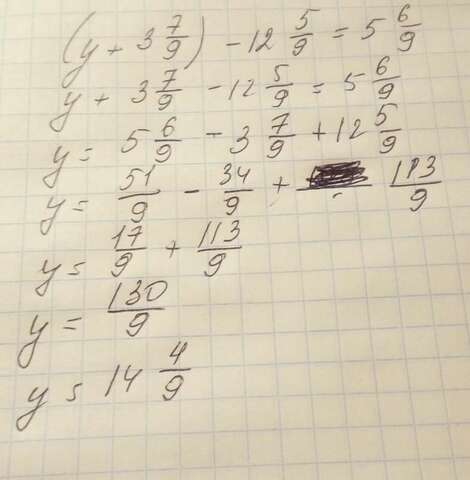 (y + 3 7/9) - 12 5/9 = 5 6/9
y + 3 7/9 - 12 5/9 = 5 6/9
y = 5 6/9 - 3 7/9 + 12 5/9
y = 51/9 - 34/9 + 113/9
y = 17/9 + 113/9
y = 130/9
y = 14 4/9